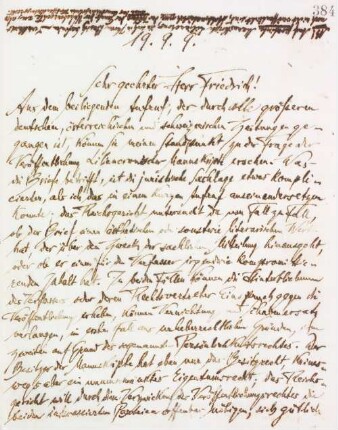 384
19. 9. 9.
Sehr geehrter Herr Friedrich!
Aus dem beiliegenden Aufruf, der durch alle grösseren
deutschen, österreichischen und schweizerischen Zeitungen ge-
gangen ist, können Sie meinen Standpunkt in der Frage der
Veröffentlichung Liliencronscher Manuskripte ersehen. Was
die Briefe betrifft, ist die juristische Sachlage etwas kompli-
cierter, als ich das in einem kurzen Aufruf auseinandersetzen
konnte. Das Reichsgericht unterscheidet da von Fall zu Fall,
ob der Brief einen künstlerischen oder sonstwie literarischen Wert
hat der über den Zweck der sachlichen Mitteilung hinausgeht,
oder ob er einen für den Verfasser irgendwie kompromittie-
renden Inhalt hat. In beiden Fällen können die Hinterbliebenen
des Verfassers oder deren Rechtsvertreter Einspruch gegen die
Veröffentlichung erheben, können Vernichtung und Schadenersatz
verlangen, im ersten Fall aus urheberrechtlichen Gründen, im
zweiten auf Grund des sogenannten Persönlichkeitsrechtes. Der
Besitzer der Manuskripte hat eben nur das Besitzrecht, keines-
wegs aber ein unumschränktes Eigentumsrecht; das Reichs-
gericht will durch den Veröffentlichungsrechtes die
beiden interessierten Parteien offenbar nötigen, sich gütlich